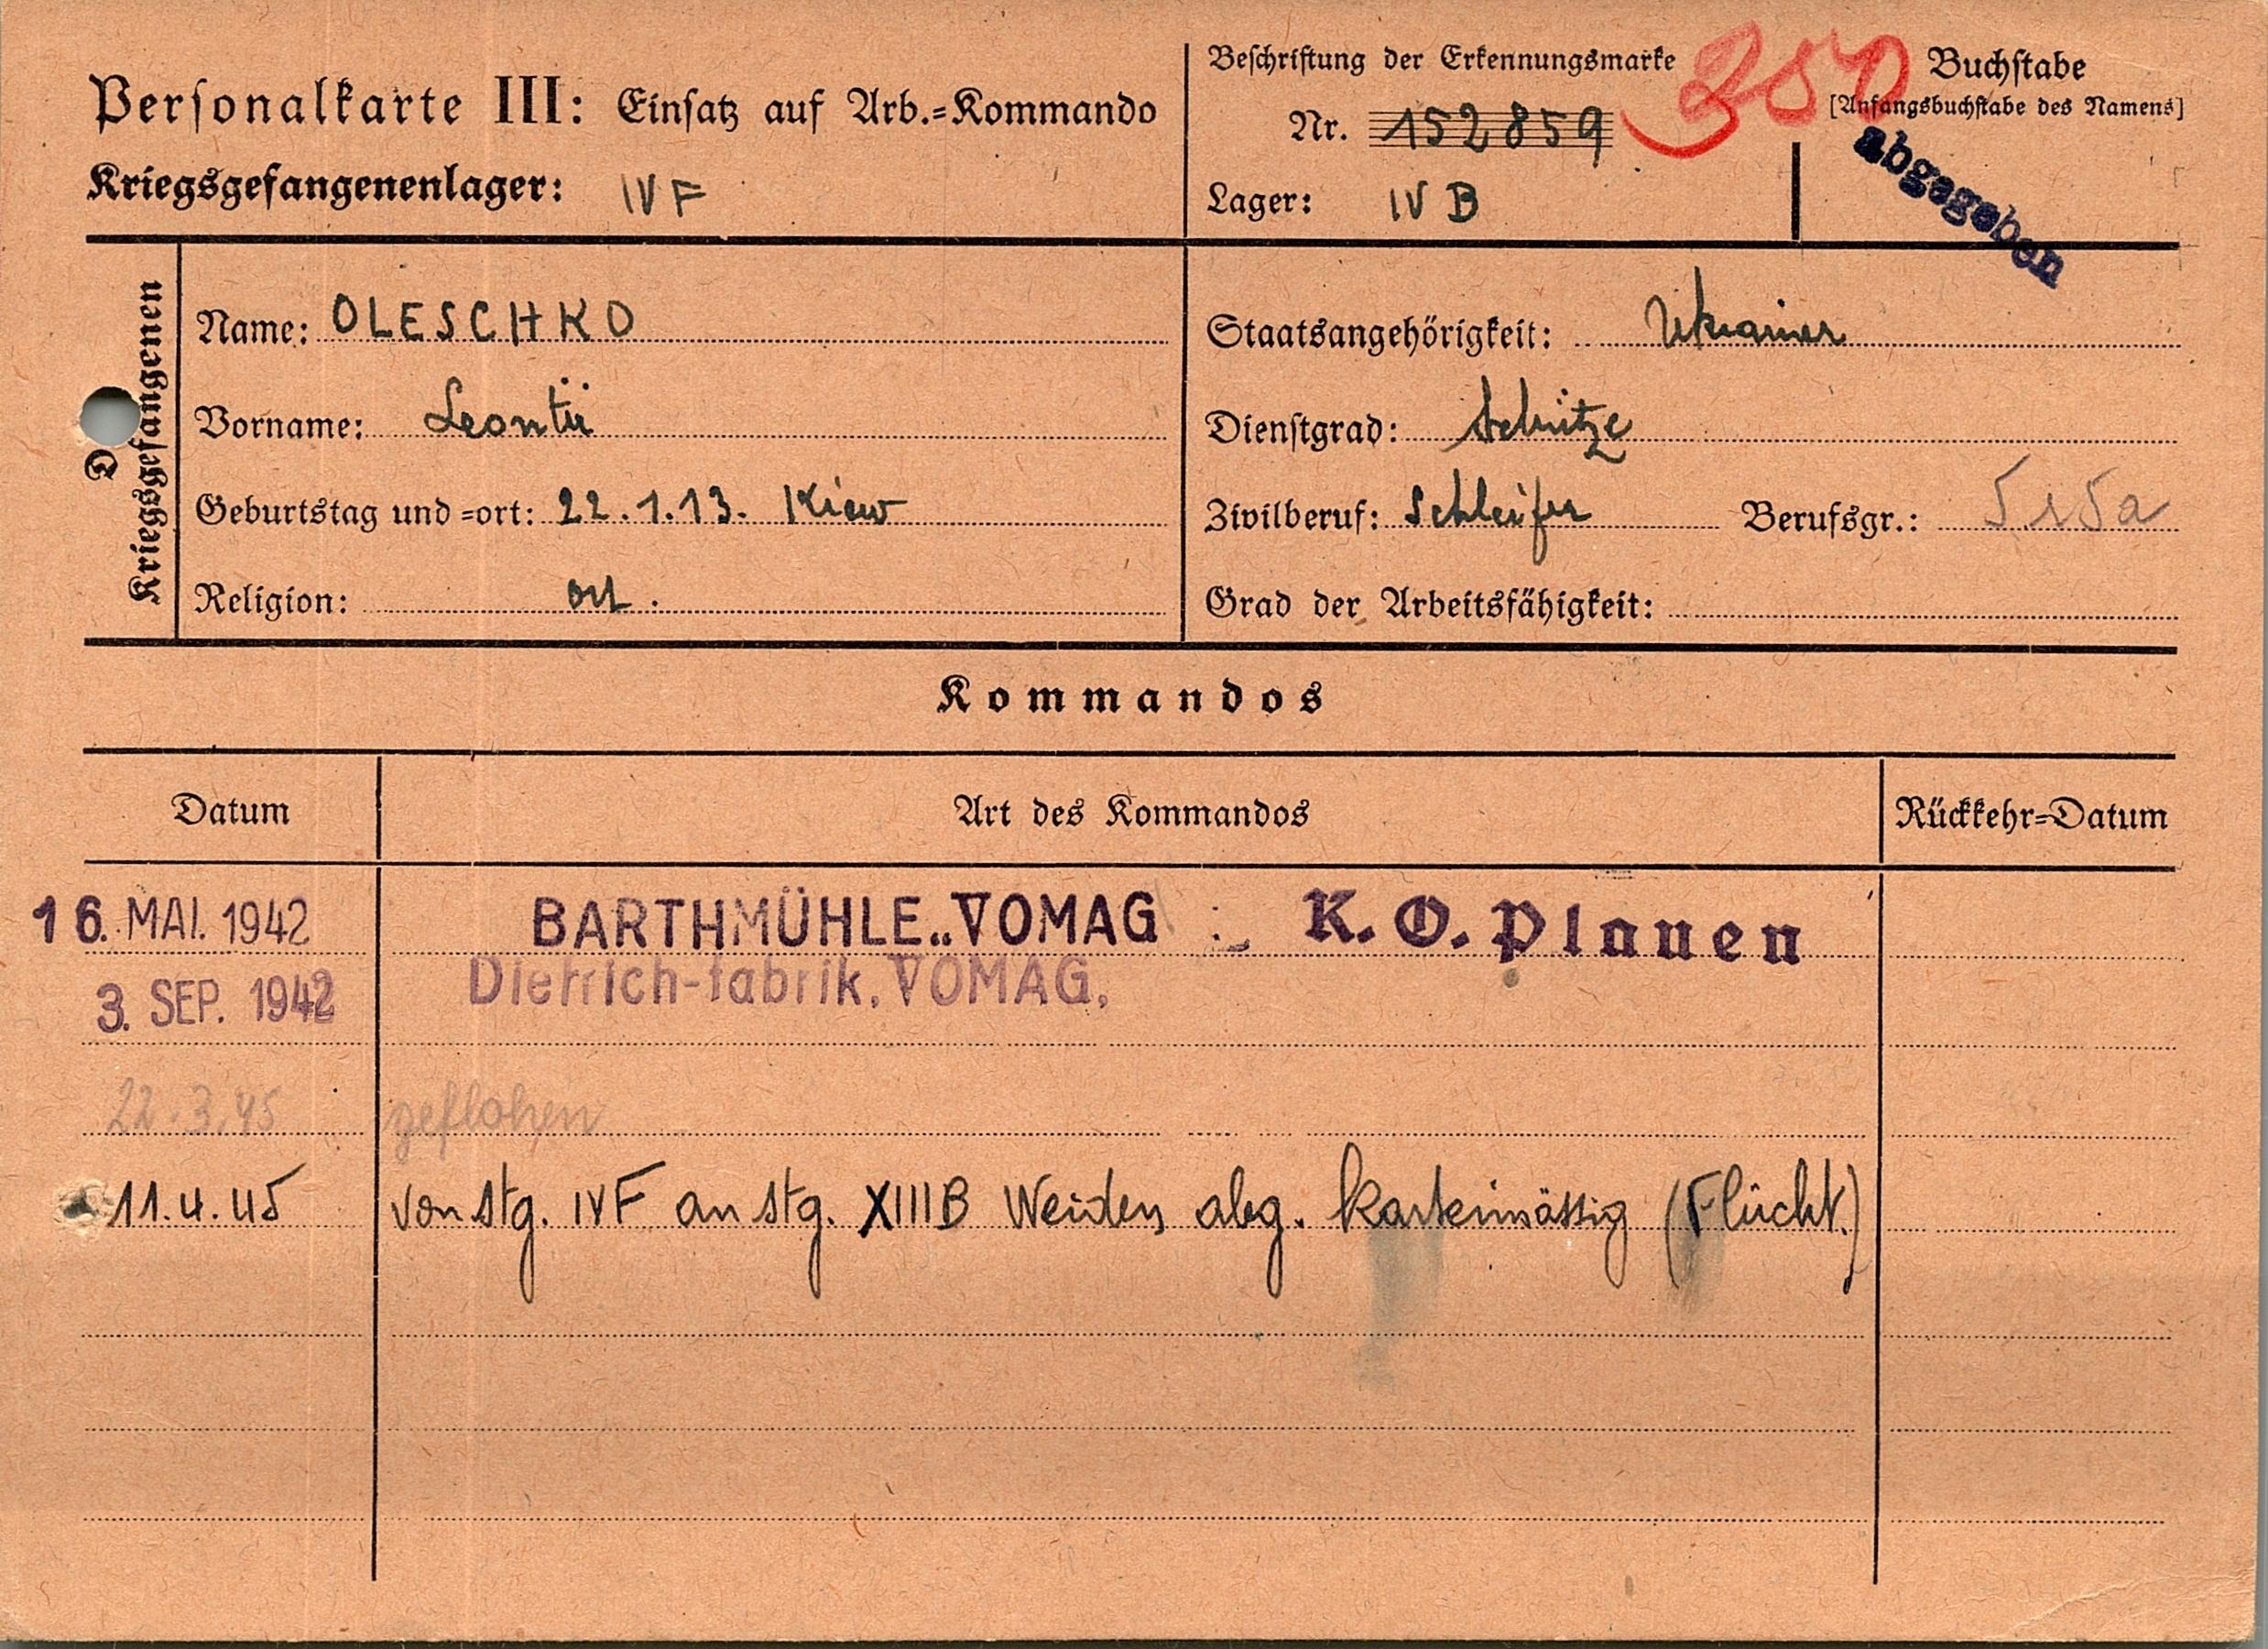 Personalkarte III: Einsatz auf Arb.=Kommando
Kriegsgefangenenlager: IV F
Beschriftung der Erkennungsmarke
Nr. 152859
Lager: IV B
Buchstabe
[Anfangsbuchstabe des Namens]
abgegeben
D. Kriegsgefangenen
Name: OLESCHKO
Vorname: Leontii
Geburtstag und =ort: 22.1.13. Kiew
Religion: ort.
Staatsangehörigkeit: Ukrainer
Dienstgrad: Schütze
Zivilberuf: Schleifer Berufsgr.:
Grad der Arbeitsfähigkeit:
Kommandos
Datum Art des Kommandos Rückkehr=Datum
16. MAI. 1942 BARTHMÜHLE„VOMAG K. O. Plauen
3. SEP. 1942 Dietrich-fabrik, VOMAG,
22.3.45 geflohen
11.4.45 von Stg. IVF an Stg. XIIIB Weiden abg. karteimässig (Flücht.)